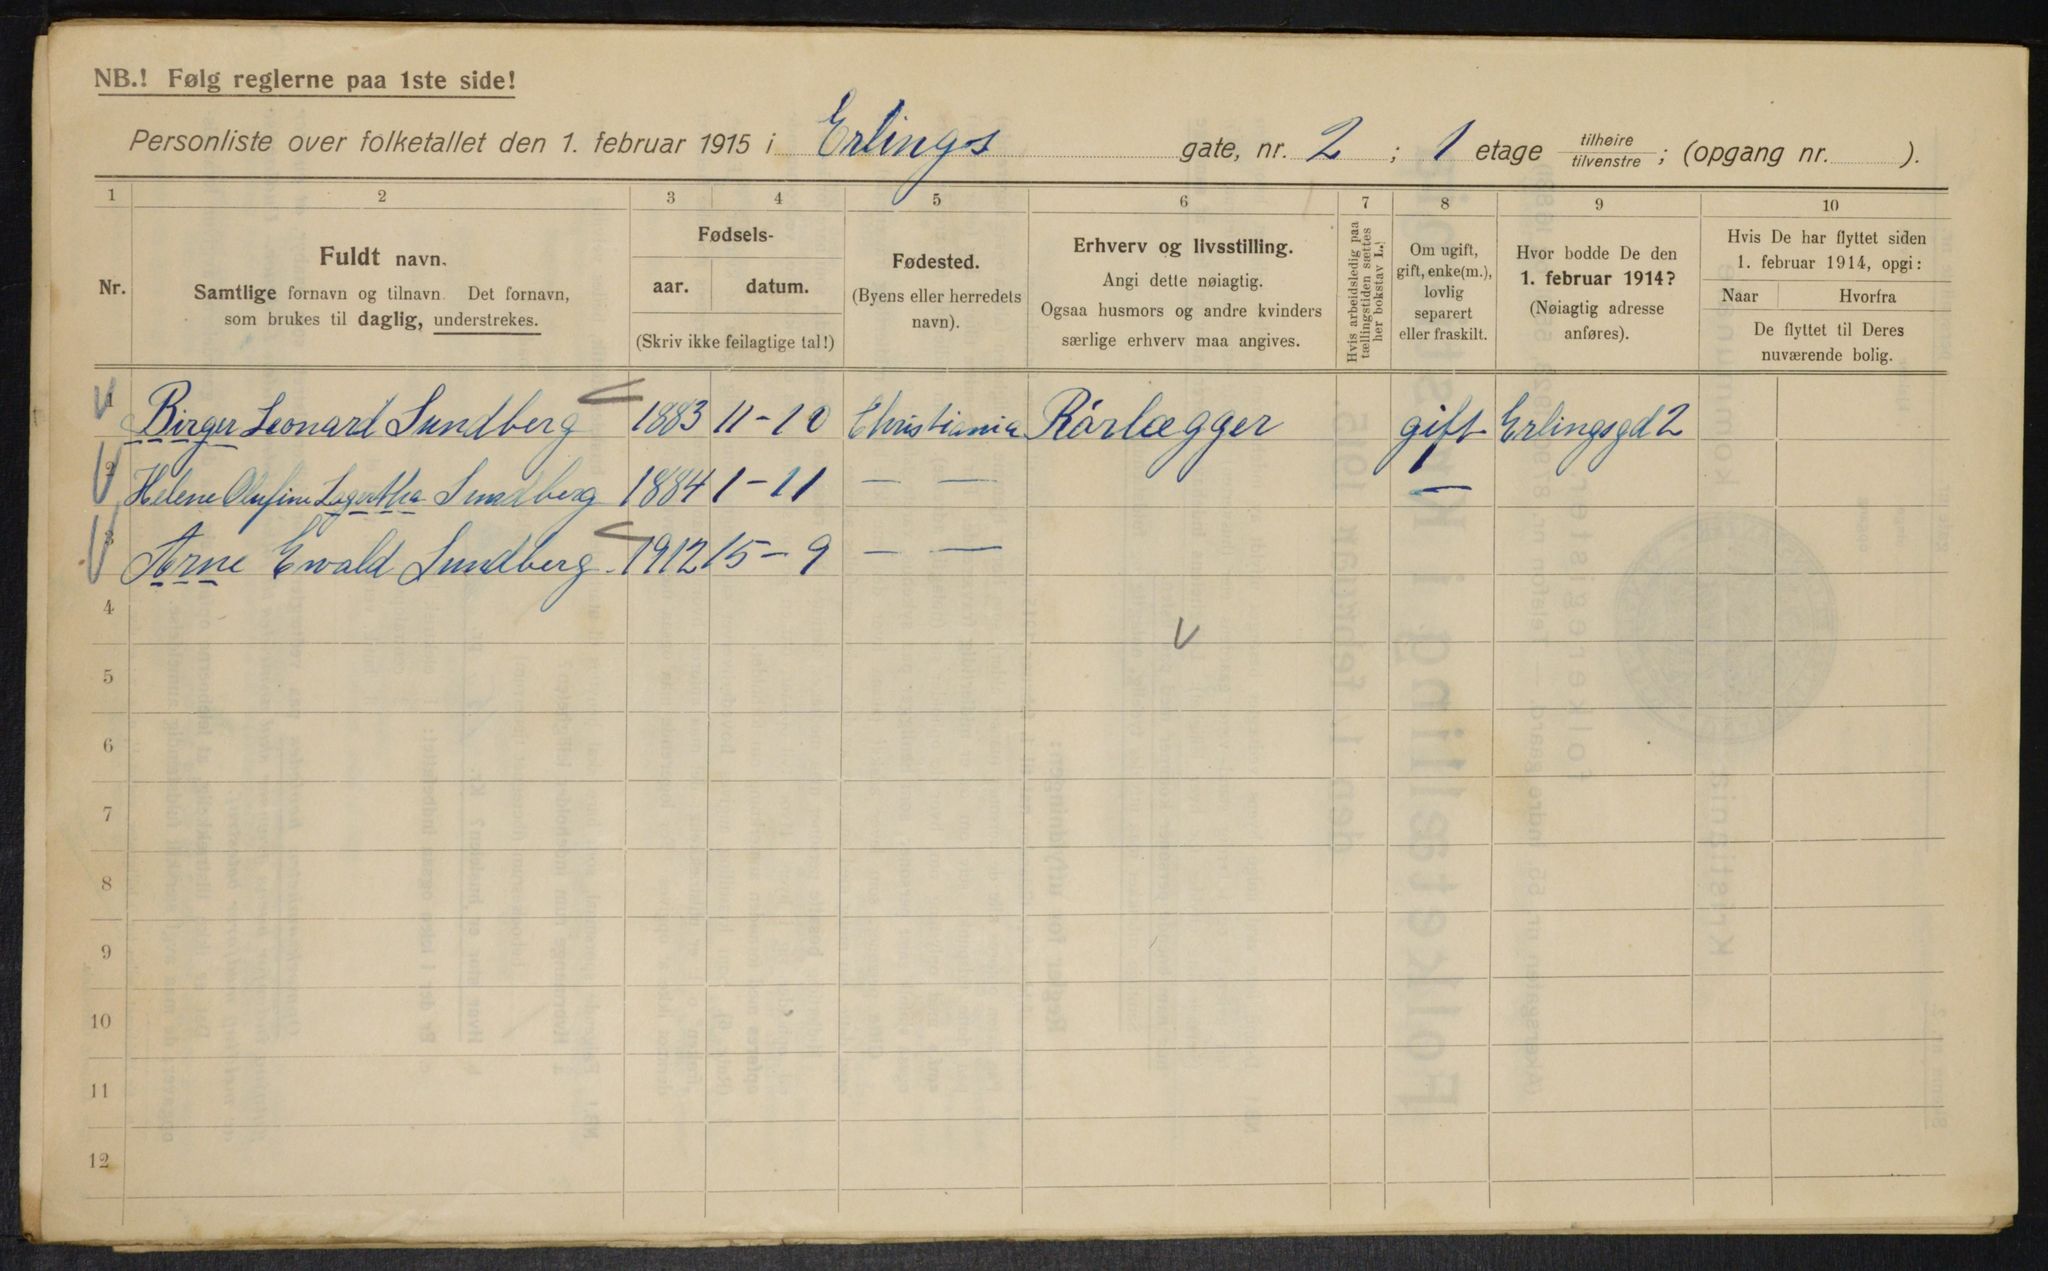 NB.! Følg reglerne paa 1ste side!
Personliste over folketallet den 1. februar 1915 i Erlings gate, nr. 2 ; 1 etage tilhøire/tilvenstre ; (opgang nr. ).
1 2 3 4 5 6 7 8 9 10
Nr.
Fuldt navn.
Samtlige fornavn og tilnavn. Det fornavn,
som brukes til daglig, understrekes.
Fødsels-
aar. datum.
(Skriv ikke feilagtige tal!)
Fødested.
(Byens eller herredets
navn).
Erhverv og livsstilling.
Angi dette nøiagtig.
Ogsaa husmors og andre kvinders
særlige erhverv maa angives.
Hvis arbeidsledig paa
tællingstiden sættes
her bokstav L.
Om ugift,
gift, enke(m.),
lovlig
separert
eller fraskilt.
Hvor bodde De den
1. februar 1914?
(Nøiagtig adresse
anføres).
Hvis De har flyttet siden
1. februar 1914, opgi:
Naar Hvorfra
De flyttet til Deres
nuværende bolig.
1 Birger Leonard Sundberg 1883 11-10 Christiania Rörlægger gift Erlingsgd 2
2 Helene Olufine Lagertha Sundberg 1884 1-11 — — —
3 Arne Ewald Sundberg 1912 15-9 — —
4
5
6
7
8
9
10
11
12